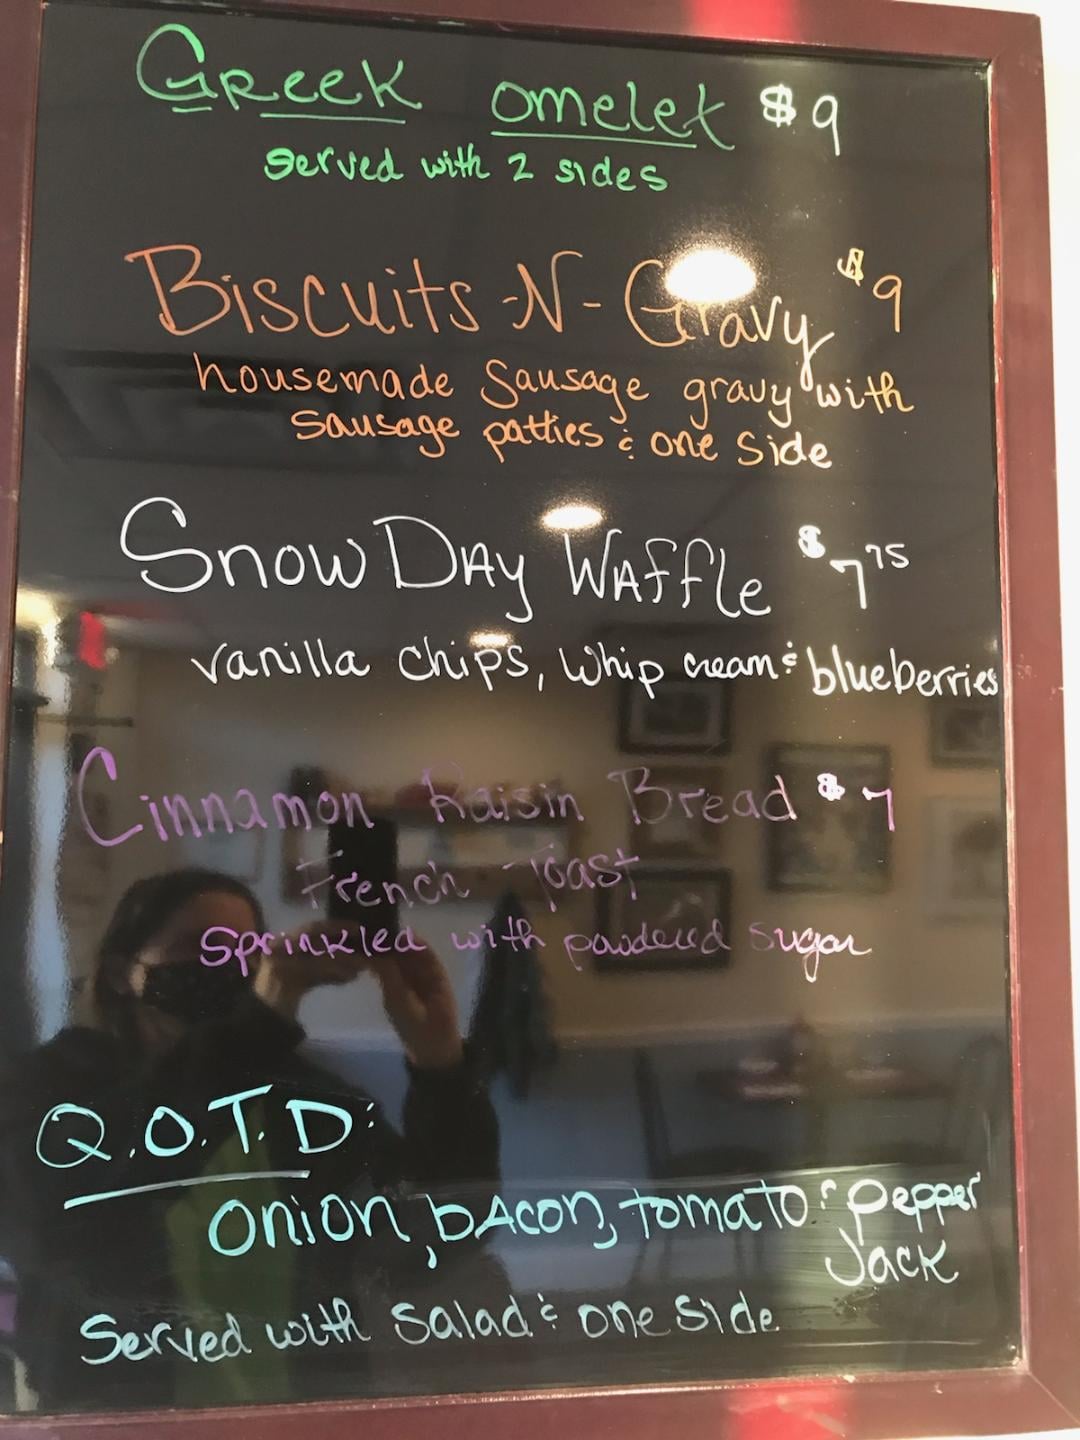 Greek omelet $9
served with 2 sides
Biscuits-N-Gravy $9
housemade Sausage gravy with
Sausage patties & one Side
Snow DAy WAffle $7 75
vanilla chips, Whip cream & blueberries
Cinnamon Raisin Bread $7
French Toast
Sprinkled with powdered sugar
Q.O.T.D:
Onion, bAcon, tomato & Pepper
Jack
Served with Salad & one Side